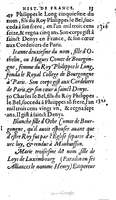 HIST. DE FRANCE.
49 Philippes le Long cinquiesme du
nom, fils du Roy Philippes le Bel,
succeda à son frere, en l'an mil trois cens
& regna cinq ans. Son corps gist
à sainct Denys en France, & son cœur
aux Cordeliers de Paris.
Ieanne deuxiesme du nom, fille d'O-
thon, ou Hugues Comte de Bourgon-
gne, femme du Roy Philippes le Long,
fonda le Royal College de Bourgongne
à Paris. Son corps gist aux Cordeliers
de Paris, & son cœur à sainct Denys.
50 Charles le Bel, fils du Roy Philippes
le Bel, succeda à Philippes
l'an mil trois cens & regna
ans, gist à sainct Denys.
Blanche fille d'Othe Comte de Bour-
gongne, qu'il auoit espousée auant que
d'estre Roy fut par l'Eglise separée d'a-
uec luy, & renduë à Maubuisson.
Marie troisiesme du nom, fille de
Loys de Luxembourg (Paradin en ses
Alliances le nomme Henry) Empereur